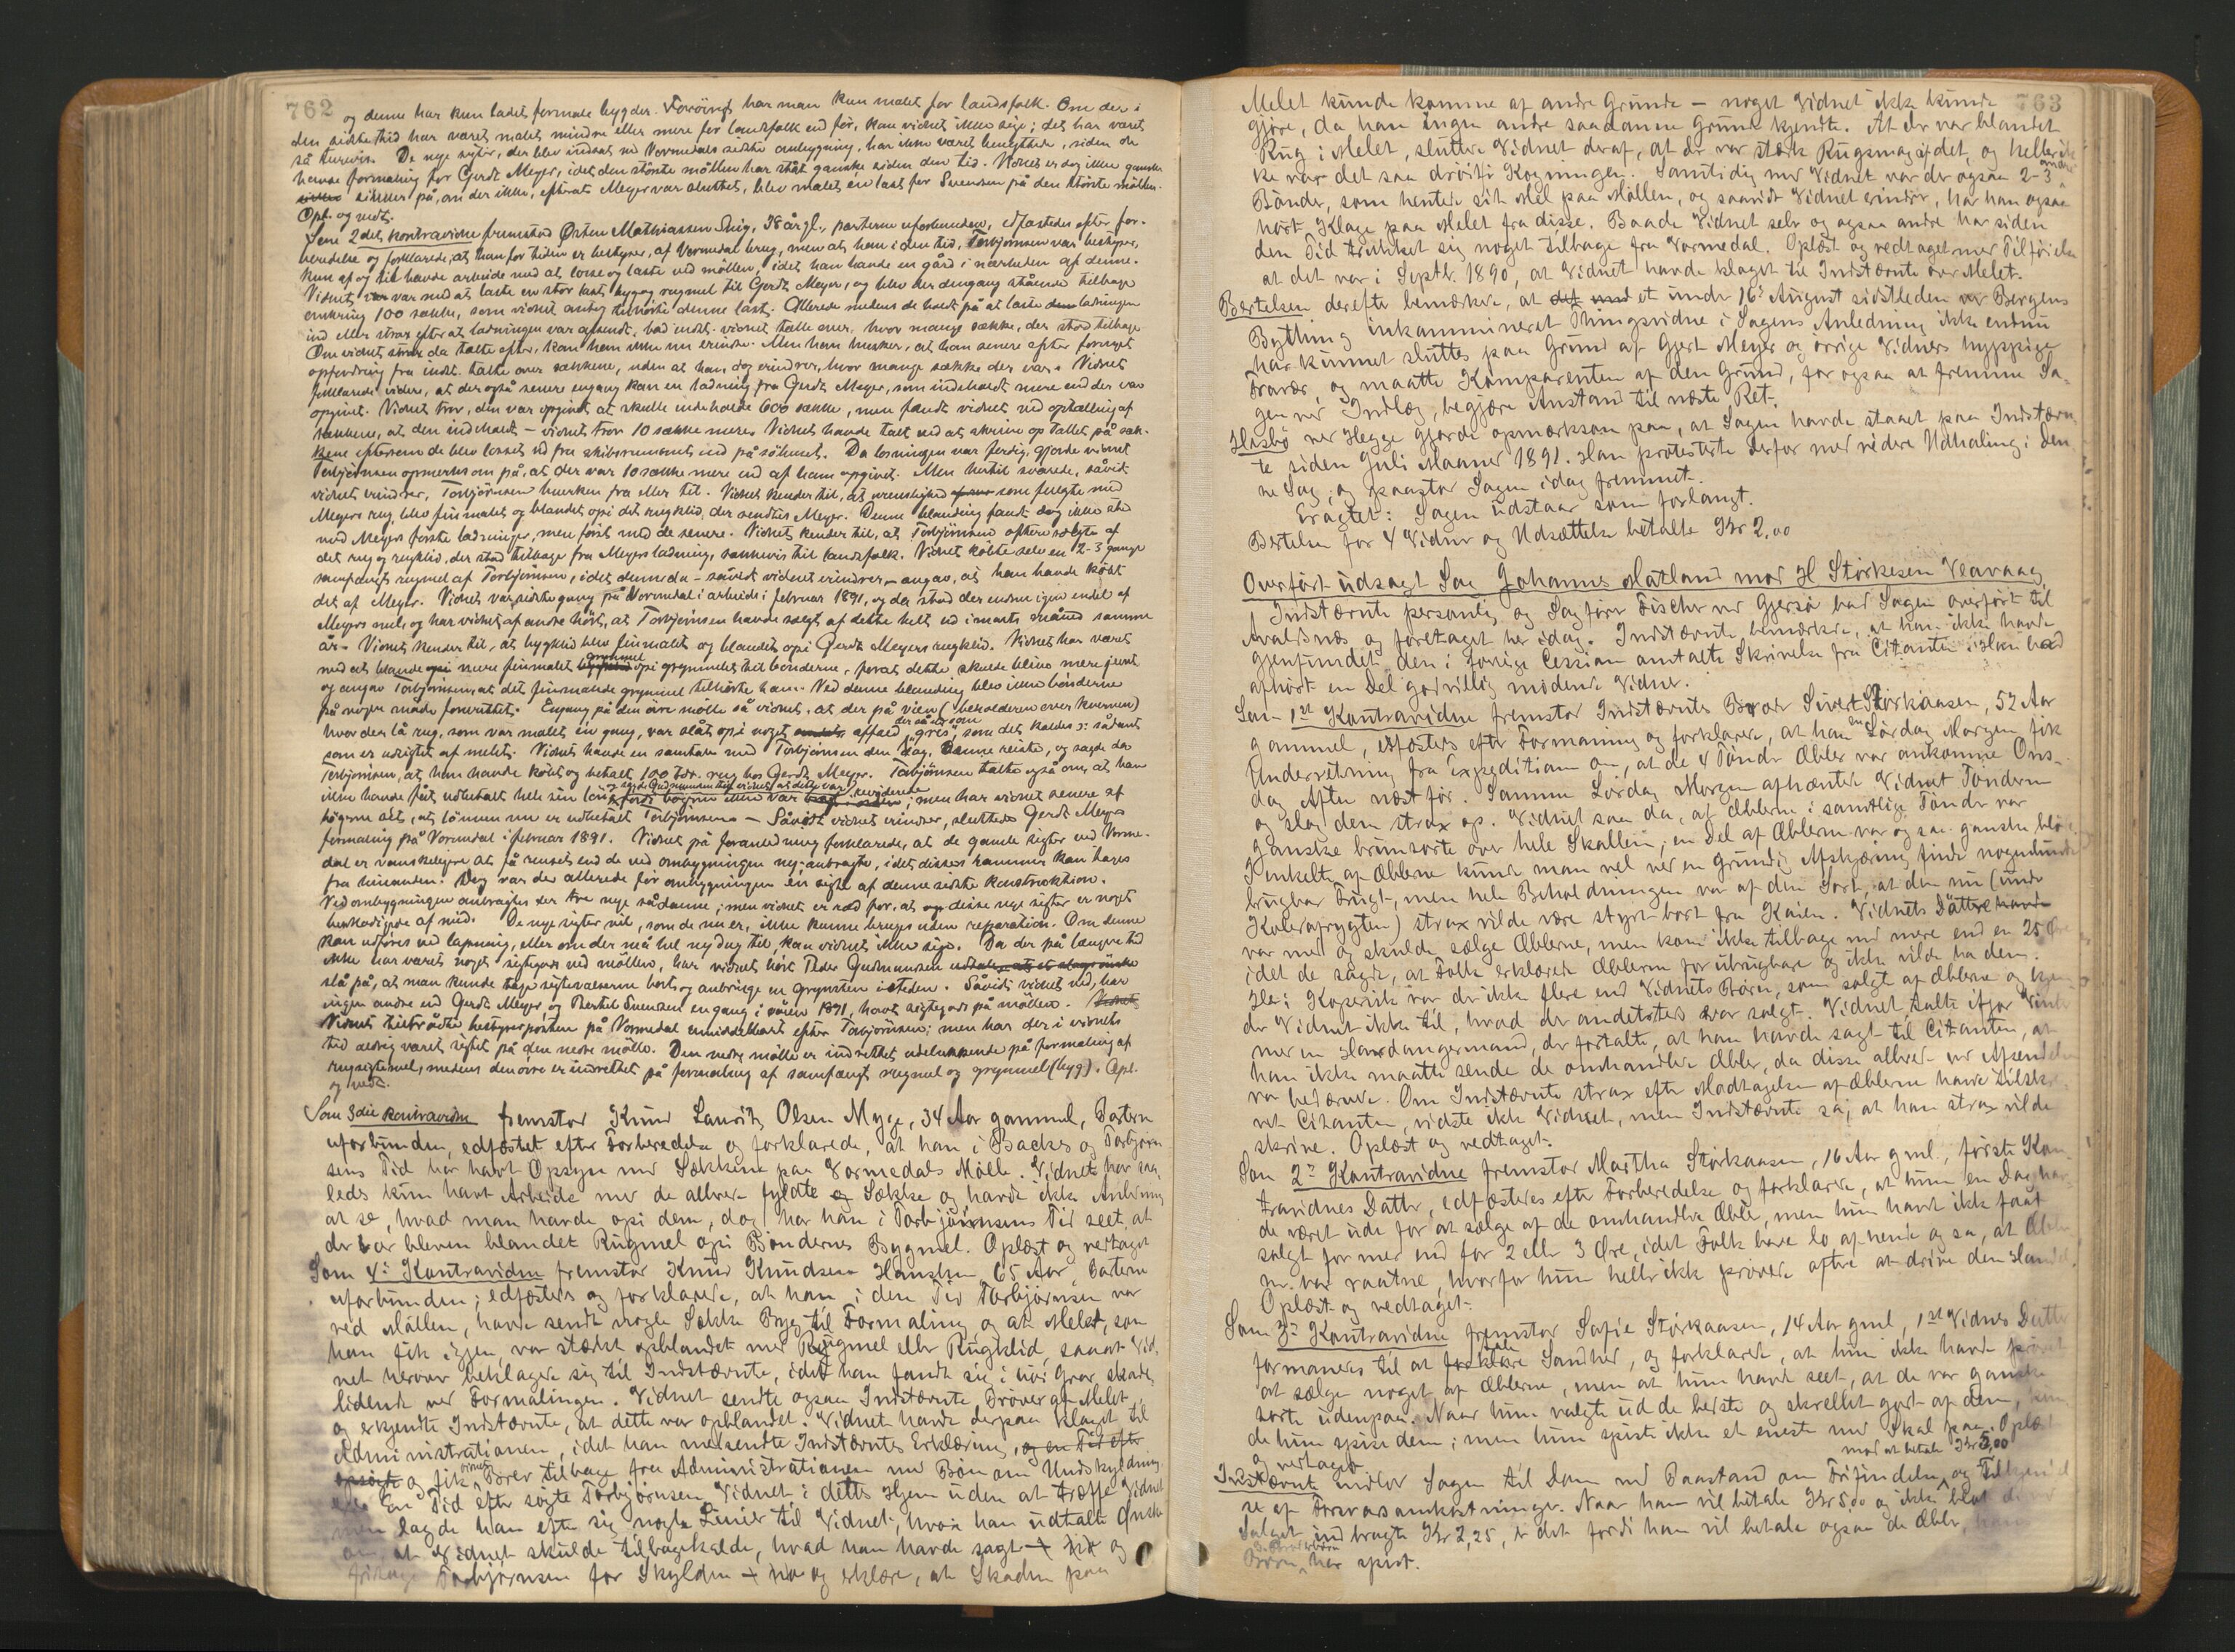 762
og denne har kun ladet formale bygder. Forøvrigt har man kun malet for landsfolk. Om der i
den sidste tid har været malet mindre eller mere for landsfolk end før, kan vidnet ikke sige; det har været
så turevis. De nye sigter, der blev indsat ved Vormedals sidste ombygning, har ikke været benyttede, siden de
havde formaling for Gerdt Meyer, idet den største møllen har stået ganske siden den tid. Vidnet er dog ikke ganske
sikker på, om der ikke, efterat Meyer var sluttet, blev malet en last for Svendsen på den største møllen.
Opl. og vedt.
Som 2det kontravidne fremstod Østen Mathiassen, 38 år gl., parterne uforbunden, edfæstedes efter for-
beredelse og forklarede, at han for tiden er bestyrer af Vormedal brug, men at han i den tid, Torbjørnsen var bestyrer,
kun af og til havde arbeide med at losse og laste ved møllen, idet han havde en gård i nærheden af denne.
Vidnet var med at laste en stor last byg og rugmel til Gerdt Meyer, og blev der dengang stående tilbage
omkring 100 sække, som vidnet antog tilhørte denne last. Allerede medens de holdt på at laste ladningen
ind eller strax efter at ladningen var afsendt, bad indst. vidnet tælle over, hvor mange sække, der stod tilbage.
Om vidnet strax da talte efter, kan han ikke nu erindre. Men han husker, at han senere efter fornyet
opfordring fra indst. talte over sækkene, uden at han dog erindrer, hvor mange sække der var. Vidnet
forklarede videre, at der også senere engang kom en ladning fra Gerdt Meyer, som indeholdt mere end der var
opgivet. Vidnet tror, den var opgivet at skulle indeholde 600 sække, men fandt vidnet ved optælling af
sækkene, at den indeholdt – vidnet tror 10 sække mere. Vidnet havde talt ved at skrive op tallet på sæk-
kene eftersom de blev losset ud fra skibsrummet ind på søhuset. Da losningen var ferdig, gjorde vidnet
Torbjørnsen opmerksom på, at der var 10 sække mere end af ham opgivet. Men hertil svarede, såvidt
vidnet erindrer, Torbjørnsen hverken fra eller til. Vidnet kender til, at urenslighed som fulgte med
Meyers rug, blev finmalet og blandet opi det rugklid, der sendtes Meyer. Denne blanding fandt dog ikke sted
med Meyers første ladninger, men først med de senere. Vidnet kender til, at Torbjørnsen oftere solgte af
det rug og rugklid, der stod tilbage fra Meyers ladning, sækkevis til landsfolk. Vidnet købte selv en 2-3 gange
samfængt rugmel af Torbjørnsen, idet denne da – såvidt vidnet erindrer – angav, at han havde købt
det af Meyer. Vidnet var sidste gang på Vormedal i arbeide i februar 1891, og da stod der endnu igjen endel af
Meyers mel, og har vidnet af andre hørt, at Torbjørnsen havde solgt af dette helt ud i marts måned samme
år. Vidnet kender til, at bygklid blev finmalet og blandet opi Gerdt Meyers rugklid. Vidnet har været
med at blande mere finmalet grynmel opi grynmelet til bønderne, forat dette skulde blive mere jevnt
og angav Torbjørnsen, at det finmalede grynmel tilhørte ham. Ved denne blanding blev ikke bønderne
på nogen måde forurettet. Engang på den øvre mølle så vidnet, at der på vien (beholderen over kvernen)
hvor der lå rug, som var malet én gang, var slåt opi noget affaed, der så ut som "gris", som det kaldes ɔ: sådant
som er udsigtet af melet. Vidnet havde en samtale med Torbjørnsen den dag, denne reiste, og sagde da
Torbjørnsen, at han havde købt og betalt 100 tdr. rug hos Gerdt Meyer. Torbjørnsen talte også om, at han
ikke havde fåt udbetalt hele sin løn, fordi bøgerne ikke var reviderede; men har vidnet senere af
bøgerne set, at lønnen nu er udbetalt Torbjørnsen. – Såvidt vidnet erindrer, sluttede Gerdt Meyers
formaling på Vormedal i februar 1891. Vidnet på foranledning forklarede, at de gamle sigter ved Vorme-
dal er vanskeligere at få renset end de ved ombygningen ny-anbragte, idet disses rammer kan tages
fra hinanden. Dog var der allerede før ombygningen én sigte af denne sidste konstruktion.
Ved ombygningen anbragtes der tre nye sådanne; men vidnet er ræd for, at disse nye sigter er noget
beskadigede af mid. De nye sigter vil, som de nu er, ikke kunne bruges uden reparation. Om denne
kan udføres ved lapning, eller om der må hel ny dug til, kan vidnet ikke sige. Da der på længere tid
ikke har været noget sigtegods ved møllen, har vidnet hørt Peder Gudmundsen
slå på, at man kunde tage sigtevæserne bort og anbringe en grynsten isteden. Såvidt vidnet ved, har
ingen andre end Gerdt Meyer, og Bertil Svendsen engang i våren 1891, havt sigtegods på møllen.
Vidnet tiltrådte bestyrerposten på Vormedal umiddelbart efter Torbjørnsen; men har der i vidnets
tid aldrig været sigtet på den nedre mølle. Den nedre mølle er indrettet udelukkende på formaling af
rugsigtemel, medens den øvre er indrettet på formaling af samfængt rugmel og grynmel (byg). Opl.
og vedt.
Som 3die Kontravidne fremstod Knud Lauritz Olsen Myge, 34 Aar gammel, Parterne
uforbunden, edfæstet efter Forberedelse og forklarede, at han i Backes og Torbjørn-
sens Tid har havt Opsyn med Sækkene paa Vormedals Mølle. Vidnet har saa-
ledes kun havt Arbeide med de allerede fyldte Sække og havde ikke Anledning
at se, hvad man havde opi dem, dog har han i Torbjørnsens Tid seet, at
der var bleven blandet Rugmel opi Bøndernes Bygmel. Oplæst og vedtaget
Som 4de Kontravidne fremstod Knud Knudsen Hauske, 65 Aar, Parterne
uforbunden; edfæstedes og forklarede, at han i den Tid Torbjørnsen var
ved Møllen, havde sendt nogle Sække Byg til Formaling og at Melet, som
han fik igjen, var stærkt opblandet med Rugmel eller Rugklid, saaat Vid-
net herover beklagede sig til Indstævnte, idet han fandt sig i høi Grad skade-
lidende ved Formalingen. Vidnet sendte ogsaa Indstævnte Prøver af Melet
og erkjendte Indstævnte, at dette var opblandet. Vidnet havde derpaa klaget til
Administrationen, idet han medsendte Indstævntes Erklæring,
og fik vidnet Brev tilbage fra Administrationen med Bøn om Undskyldning.
En Tid efter søgte Torbjørnsen Vidnet i dettes Hjem uden at træffe Vidnet
men lagde han efter sig nogle Linier til Vidnet, hvori han udtalte Ønske
om, at Vidnet skulde tilbagekalde, hvad han havde sagt og
fritage Torbjørnsen for Skylden og erklære, at Skaden paa
763
Melet kunde komme af andre Grunde – noget Vidnet ikke kunde
gjøre, da han ingen andre saadanne Grunde kjendte. At der var blandet
Rug i Melet, sluttede Vidnet deraf, at der var stærk Rugsmag af det, og heller ik-
ke var det saa drøit i Kogningen. Samtidig med Vidnet var der ogsaa 2-3 andre
Bønder, som hentede sit Mel paa Møllen, og saavidt Vidnet erindrer, har han ogsaa
hørt Klage paa Melet fra disse. Baade Vidnet selv og ogsaa andre har siden
den Tid trukket sig noget tilbage fra Vormedal. Oplæst og vedtaget med Tilføielse
at det var i Septbr. 1890, at Vidnet havde klaget til Indstævnte over Melet.
Bertelsen derefter bemærkede, at et under 16de August sidstleden ved Bergens
Bything inkammineret Thingsvidne i Sagens Anledning ikke endnu
har kunnet sluttes paa Grund af Gjert Meyer og øvrige Vidners hyppige
Fravær, og maatte Komparenten af den Grund, for ogsaa at fremme Sa-
gen ved Indlæg, begjære Anstand til næste Ret.
Hasbø ved Hegge gjorde opmærksom paa, at Sagen havde staaet paa Indstævn-
te siden Juli Maaned 1891. Han protesterte derfor mod videre Udhaling i den-
ne Sag, og paastod Sagen idag fremmet.
Eragtet: Sagen udstaar som forlangt.
Bertelsen for 4 Vidner og Udsættelse betalte Kr 2,00
Overført udsagt Sag Johannes Matland mod H Størkesen Veavaag.
Indstævnte personlig og Sagfører Fischer ved Gjersø bad Sagen overført til
Avaldsnæs og foretaget her idag. Indstævnte bemærkede, at han ikke havde
gjenfundet den i forrige Session omtalte Skrivelse fra Citanten. Han bad
afhørt en Del godvillig mødende Vidner.
Som 1ste Kontravidne fremstod Indstævntes Broder Sivert Størkaasen, 52 Aar
gammel, edfæstedes efter Formaning og forklarede, at han en Lørdag Morgen fik
Underretning fra Expeditionen om, at de 4 Tønder Æbler var ankomne Ons-
dag Aften næst før. Samme Lørdag Morgen afhentede Vidnet Tønderne
og slog dem strax op. Vidnet saa da, at Æblerne i samtlige Tønder var
ganske brunsorte over hele Skallen; en Del af Æblerne var ogsaa ganske bløde.
I enkelte af Æblerne kunde man vel ved en grundig Afskjæring finde nogenlunde
brugbar Frugt, men hele Beholdningen var af den Sort, at den nu (under
Kolerafrygten) strax vilde være styrtet bort fra Kaien. Vidnets Døttre
var med og skulde sælge Æblerne, men kom ikke tilbage med mere end en 25 Øre
idet de sagde, at Folk erklærede Æblerne for ubrugbare og ikke vilde ha dem.
Her i Kopervik var der ikke flere end Vidnets Børn, som solgte af Æblerne og kjen-
der Vidnet ikke til, hvad der andetsteds var solgt. Vidnet talte ifjor Vinter
med en Hardangermand, der fortalte, at han havde sagt til Citanten, at
han ikke maatte sende de omhandlede Æbler, da disse allerede ved Afsendelsen
var befængte. Om Indstævnte strax efter Modtagelsen af Æblerne havde tilskre-
vet Citanten, vidste ikke Vidnet, men Indstævnte sa, at han strax vilde
skrive. Oplæst og vedtaget.
Som 2det Kontravidne fremstod Martha Størkaasen, 16 Aar gml., første Kon-
travidnes Datter, edfæstedes efter Forberedelse og forklarede, at hun en Dag hav-
de været ude for at sælge af de omhandlede Æbler, men hun havde ikke faaet
solgt for mer end for 2 eller 3 Øre, idet Folk bare lo af hende og sa, at Æbler-
ne var raatne, hvorfor hun heller ikke prøvede oftere at drive den Handel.
Oplæst og vedtaget.
Som 3die Kontravidne fremstod Sofie Størkaasen, 14 Aar gml, 1ste Vidnes Datter
formanedes til at tale Sandhed, og forklarede, at hun ikke havde prøvet
at sælge noget af Æblerne, men at hun havde seet, at de var ganske
sorte udenpaa. Naar hun valgte ud de bedste og skrellet godt af dem, kun-
de hun spise dem; men hun spiste ikke et eneste med Skal paa. Oplæst
og vedtaget.
Indstævnte indlod Sagen til Dom med Paastand om Frifindelse mod at betale Kr 5,00 og Tilkjendel-
se af Forsvarsomkostninger. Naar han vil betale Kr 5,00 og ikke blot det
Salget indbragte Kr 2,25, er det fordi han vil betale ogsaa de Æbler, hans
Børn har spist.